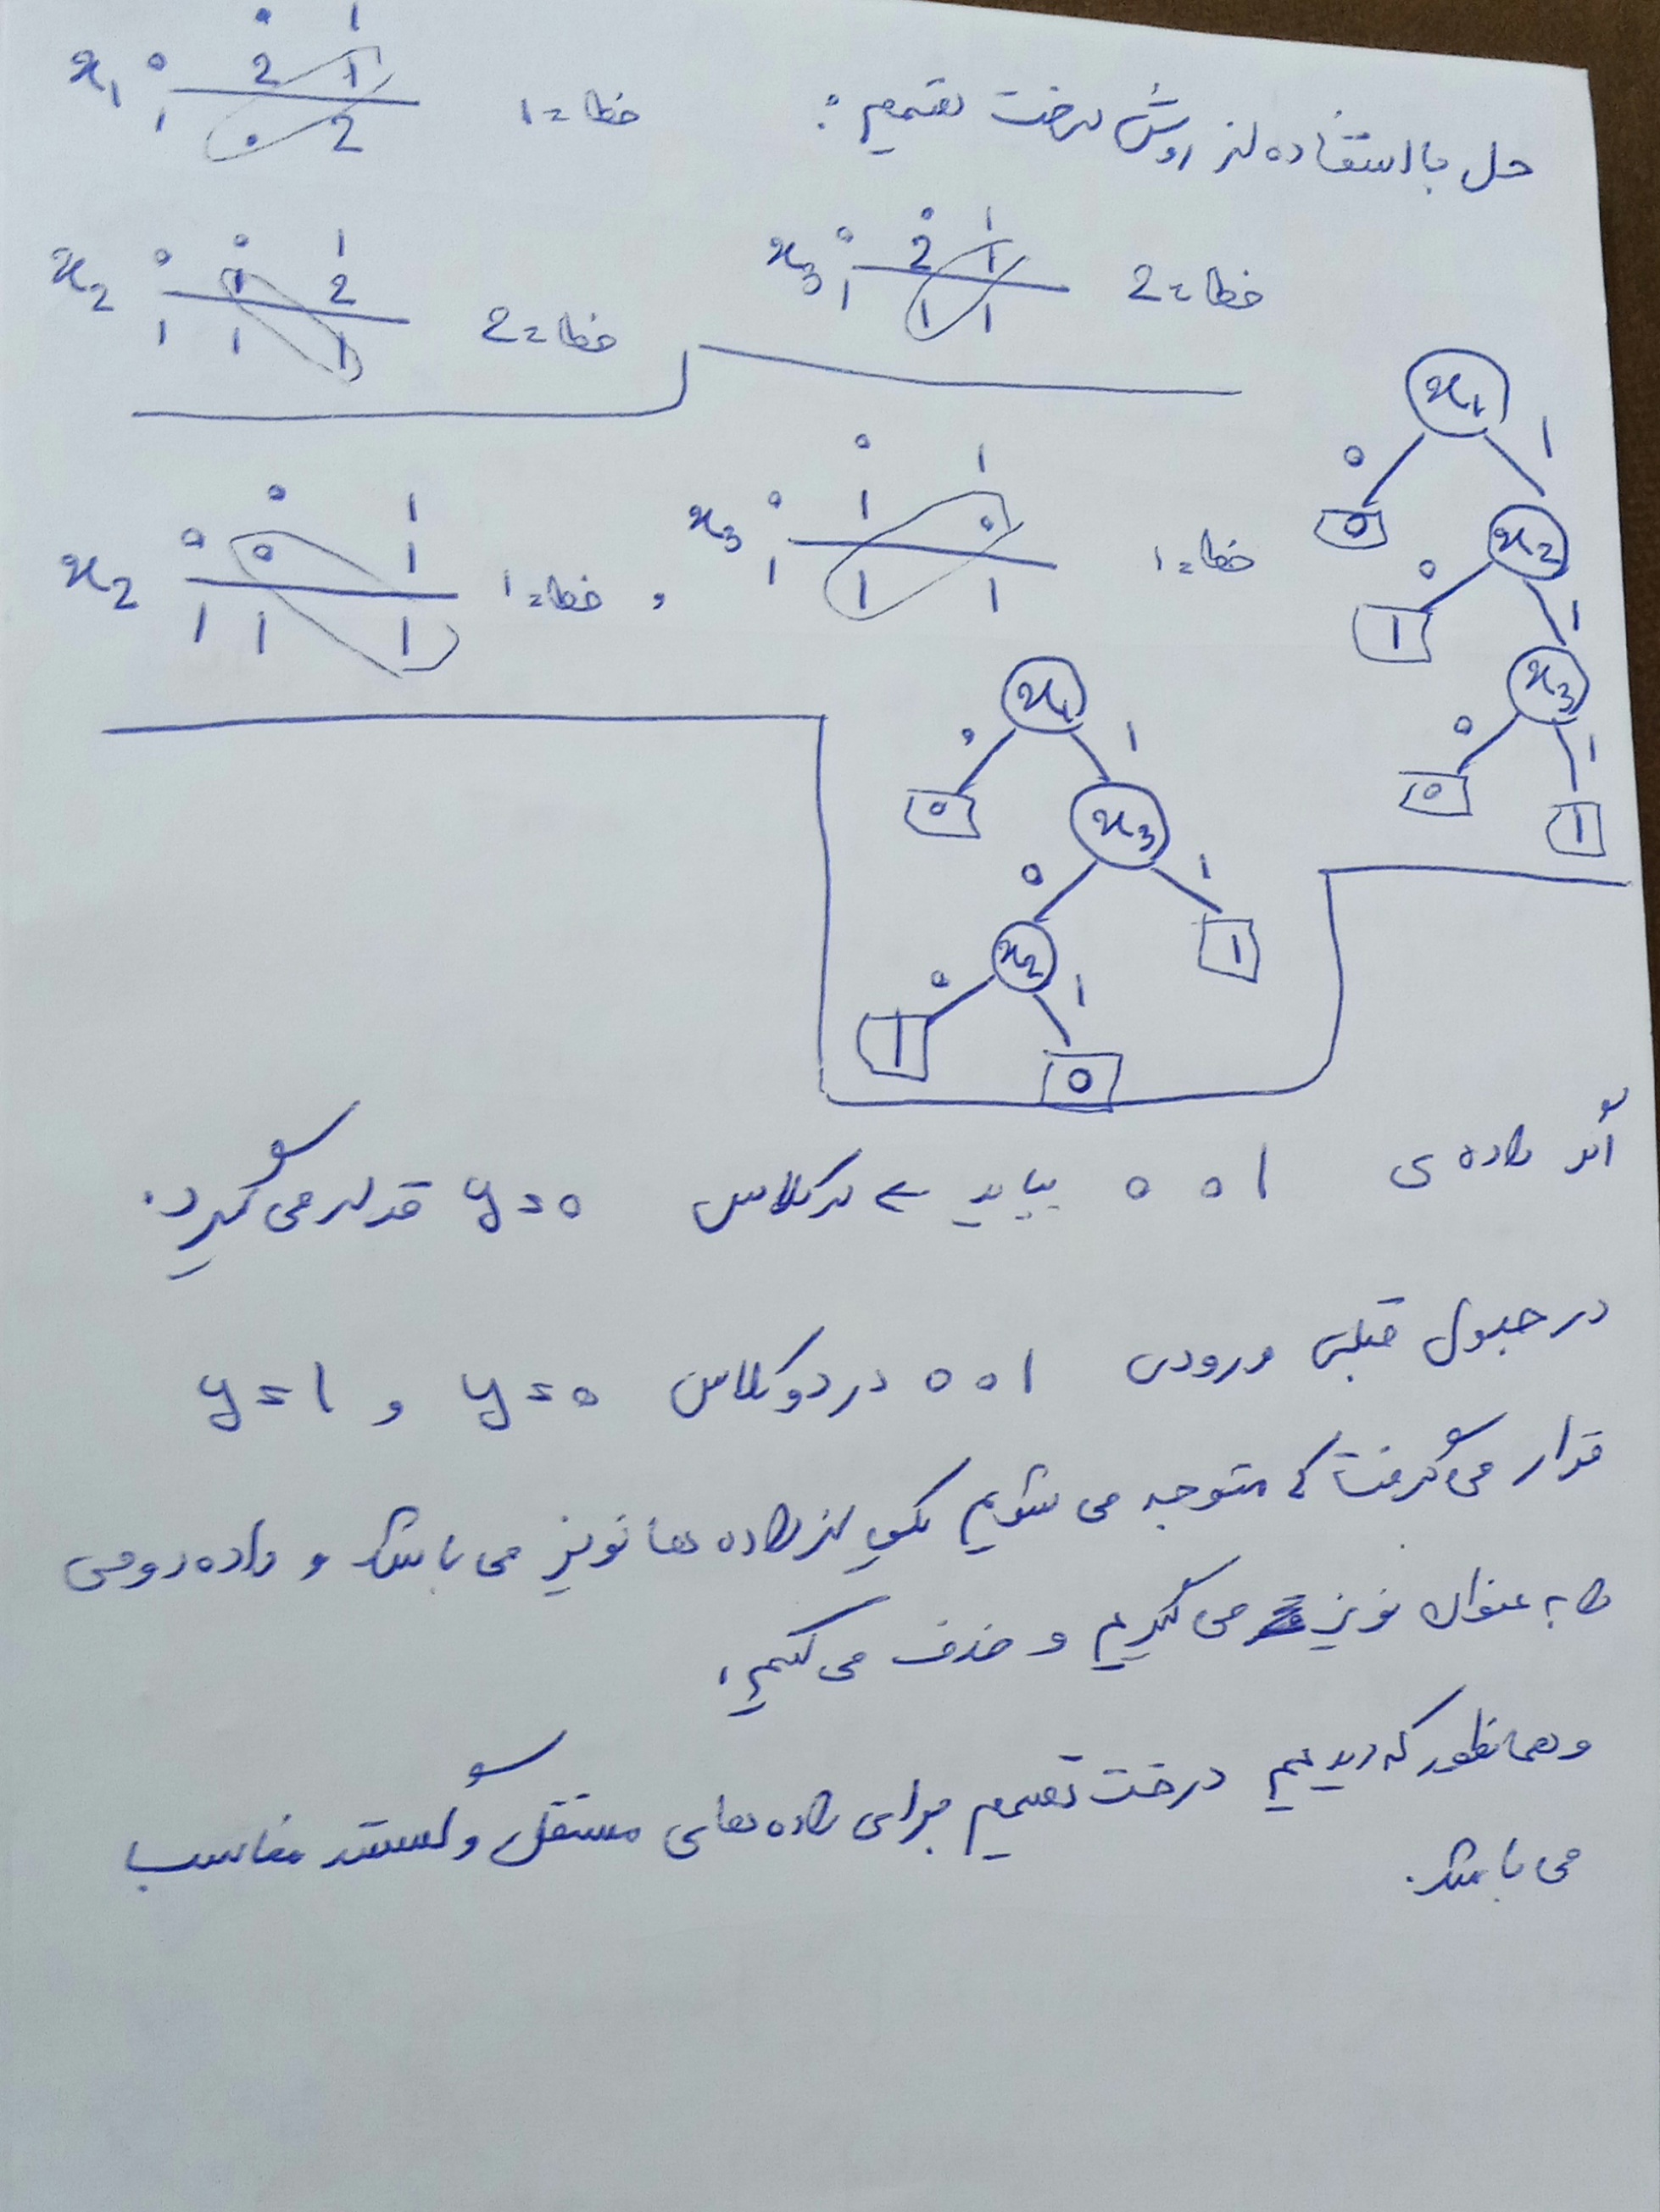 حل با استفاده از روش درخت تصمیم :
x₁ 0 1
0 2 1
1 0 2
خطا = 1
x₂ 0 1
0 1 2
1 1 1
خطا = 2
x₃ 0 1
0 2 1
1 1 1
خطا = 2
x₂ 0 1
0 0 1
1 1 1
خطا = 1 ,
x₃ 0 1
0 1 0
1 1 1
خطا = 1
x₁
0 1
0 x₂
0 1
1 x₃
0 1
0 1
x₁
0 1
0 x₃
0 1
x₂ 1
0 1
1 0
اگر داده ی 0 0 1 بیاید ← در کلاس y=0 قرار می گیرد.
در جدول قبلی ورودی 0 0 1 در دو کلاس y=0 و y=1
قرار می گرفت که متوجه می شویم یکی از داده ها نویز می باشد و داده دومی
را به عنوان نویز می گیریم و حذف می کنیم.
و همانطور که دیدیم درخت تصمیم برای داده های مستقل و گسسته مناسب
می باشد.